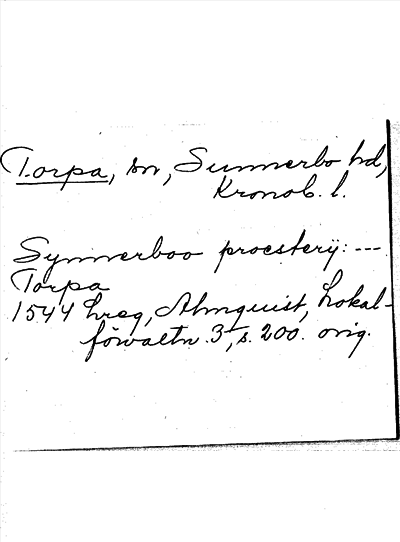 Torpa, sn, Sunnerbo hd,
Kronob. l.
Synnerboo proesterij: ---
Torpa
1544 hreg, Almquist, Lokal-
förvaltn. 3, s. 200. orig.